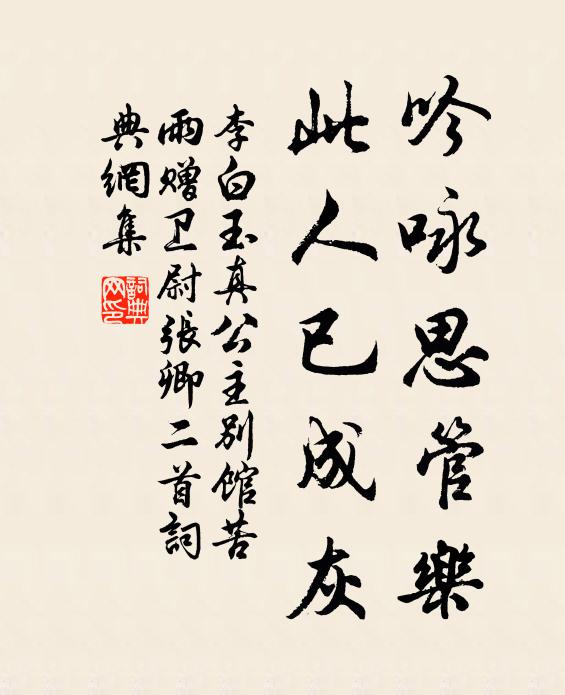 吟咏思管樂
此人已成灰
李白玉真公主别館苦
雨赠卫尉張卿二首詞
典網集
詞典网印